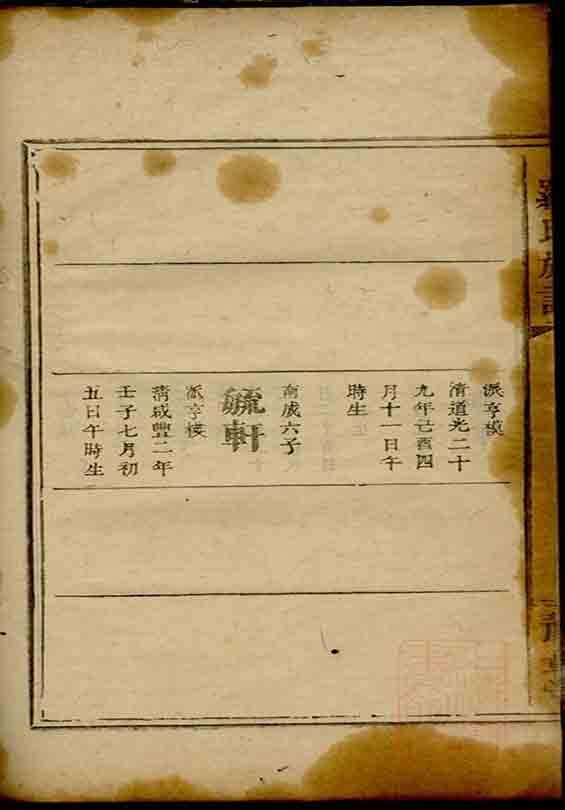 羅氏族譜
派亨模
清道光二十
九年己酉四
月十一日午
時生
南成六子
毓軒
派亨模
清咸豐二年
壬子七月初
五日午時生